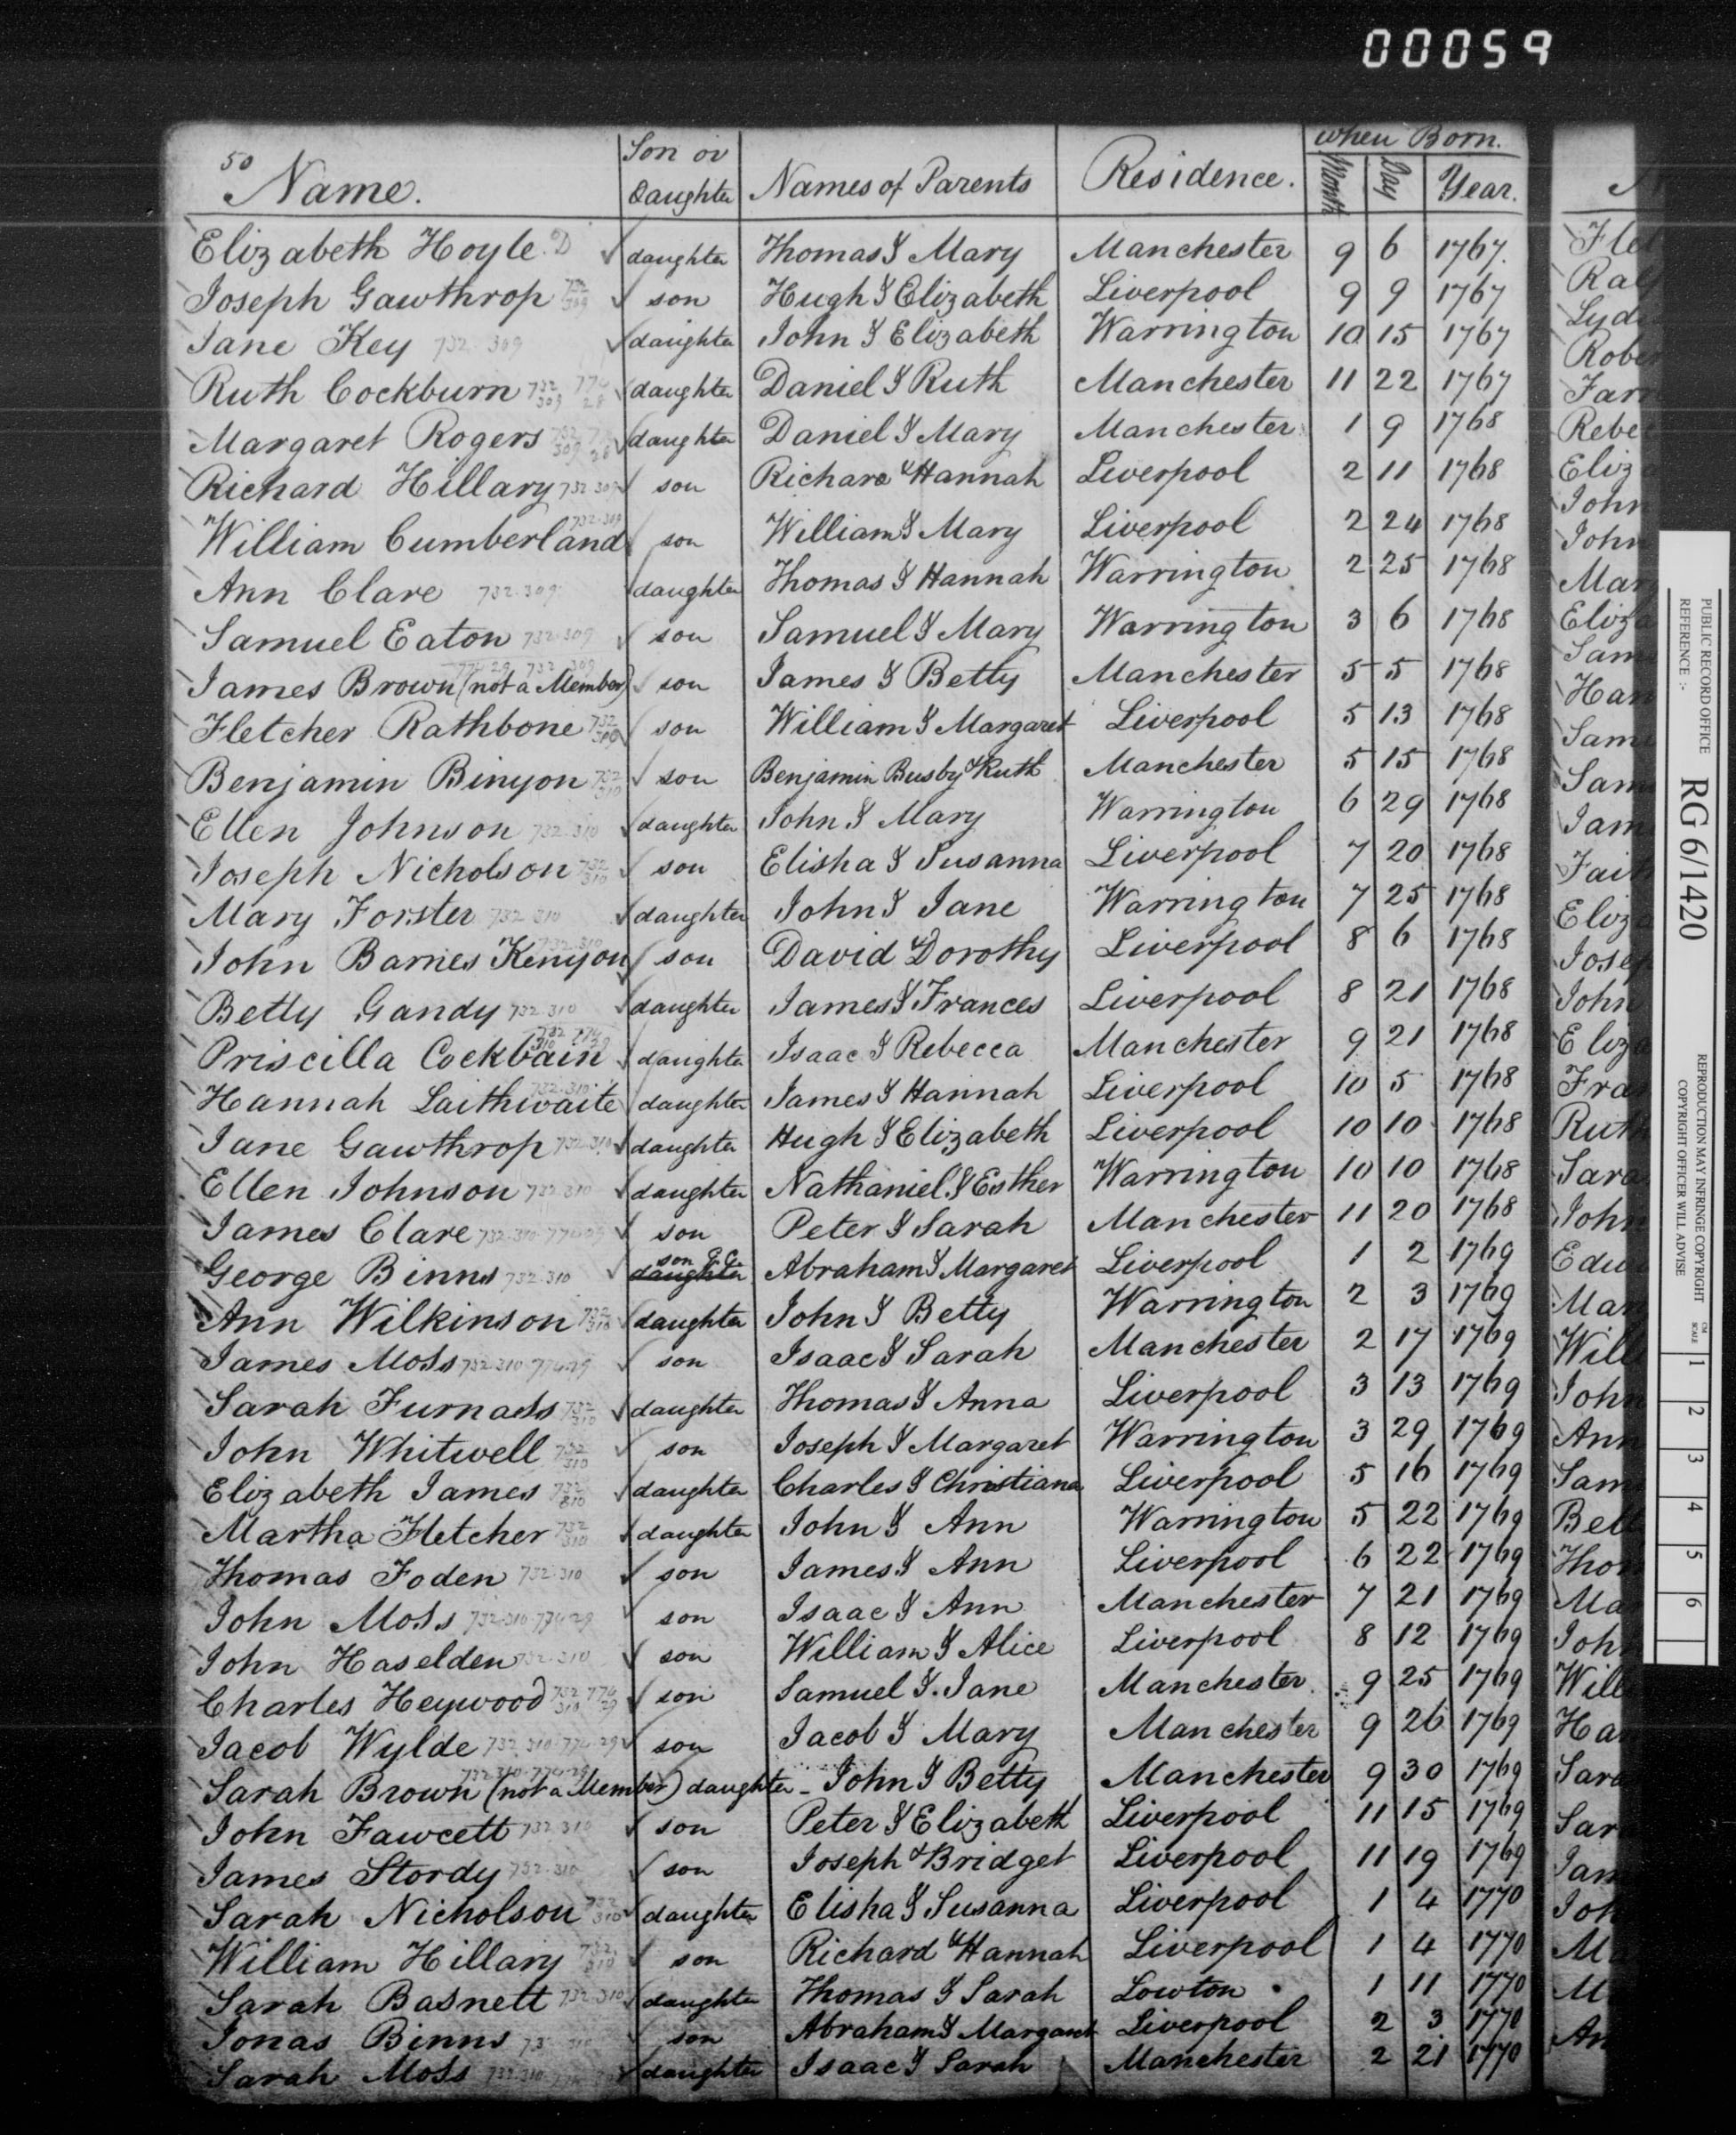 00059
50 Name. Son or Daughter Names of Parents Residence. When Born. Month Day Year.
Elizabeth Hoyle D daughter Thomas & Mary Manchester 9 6 1767.
Joseph Gawthrop 732 309 son Hugh & Elizabeth Liverpool 9 9 1767
Jane Key 732 309 daughter John & Elizabeth Warrington 10 15 1767
Ruth Cockburn 732 309 774 28 daughter Daniel & Ruth Manchester 11 22 1767
Margaret Rogers 309 28 daughter Daniel & Mary Manchester 1 9 1768
Richard Hillary 732 309 son Richard & Hannah Liverpool 2 11 1768
William Cumberland 732.309 son William & Mary Liverpool 2 24 1768
Ann Clare 732.309 daughter Thomas & Hannah Warrington 2 25 1768
Samuel Eaton 732.309 son Samuel & Mary Warrington 3 6 1768
James Brown (not a Member) 774 29 732 309 son James & Betty Manchester 5 5 1768
Fletcher Rathbone 732 son William & Margaret Liverpool 5 13 1768
Benjamin Binyon 732 310 son Benjamin Busby & Ruth Manchester 5 15 1768
Ellen Johnson 732.310 daughter John & Mary Warrington 6 29 1768
Joseph Nicholson 732 310 son Elisha & Susanna Liverpool 7 20 1768
Mary Forster 732 310 daughter John & Jane Warrington 7 25 1768
John Barnes Kenyon 732.310 son David & Dorothy Liverpool 8 6 1768
Betty Gandy 732.310 daughter James & Frances Liverpool 8 21 1768
Priscilla Cockbain 732 310 774 29 daughter Isaac & Rebecca Manchester 9 21 1768
Hannah Laithwaite 732.310 daughter James & Hannah Liverpool 10 5 1768
Jane Gawthrop 732.310 daughter Hugh & Elizabeth Liverpool 10 10 1768
Ellen Johnson 732 310 daughter Nathaniel & Esther Warrington 10 10 1768
James Clare 732.310.774.29 son Peter & Sarah Manchester 11 20 1768
George Binns 732.310 son daughter Abraham & Margaret Liverpool 1 2 1769
Ann Wilkinson 732 310 daughter John & Betty Warrington 2 3 1769
James Moss 732.310.774.29 son Isaac & Sarah Manchester 2 17 1769
Sarah Furnass 732 310 daughter Thomas & Anna Liverpool 3 13 1769
John Whitwell 732 310 son Joseph & Margaret Warrington 3 29 1769
Elizabeth James 732 310 daughter Charles & Christiana Liverpool 5 16 1769
Martha Fletcher 732 310 daughter John & Ann Warrington 5 22 1769
Thomas Foden 732.310 son James & Ann Liverpool 6 22 1769
John Moss 732.310.774.29 son Isaac & Ann Manchester 7 21 1769
John Haselden 732.310 son William & Alice Liverpool 8 12 1769
Charles Heywood 732 310 774 29 son Samuel & Jane Manchester 9 25 1769
Jacob Wylde 732 310.774.29 son Jacob & Mary Manchester 9 26 1769
Sarah Brown (not a Member) 732 310.774.29 daughter - John & Betty Manchester 9 30 1769
John Fawcett 732 310 son Peter & Elizabeth Liverpool 11 15 1769
James Stordy 732.310 son Joseph & Bridget Liverpool 11 19 1769
Sarah Nicholson 732 310 daughter Elisha & Susanna Liverpool 1 4 1770
William Hillary 732 310 son Richard & Hannah Liverpool 1 4 1770
Sarah Basnett 732.310 daughter Thomas & Sarah Lowton 1 11 1770
Jonas Binns 310 son Abraham & Margaret Liverpool 2 3 1770
Sarah Moss 732.310 daughter Isaac & Sarah Manchester 2 21 1770
PUBLIC RECORD OFFICE
REFERENCE :-
RG 6/1420
REPRODUCTION MAY INFRINGE COPYRIGHT
COPYRIGHT OFFICER WILL ADVISE
CM SCALE 1 2 3 4 5 6